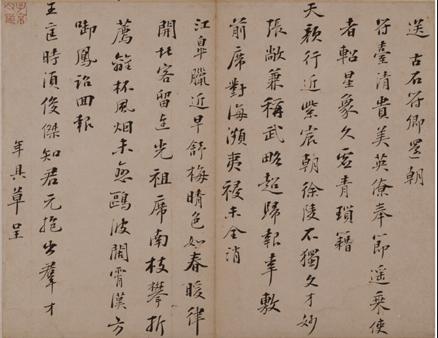 送古石符卿還朝
符臺清貴美英僚奉節遥乘使
者軺星象久虚青瑣籍
天顔行近紫宸朝徐陵不獨文才妙
張敞兼稱武略超歸報幸敷
前席對海瀕夷祲未全消
江皐臘近早舒梅晴色如春暖律
開北客留連光祖席南枝攀折
薦離杯風烟未無鷗波闊霄漢方
啣鳳詔回報
王庭時須俊傑知君元抱出羣才
年具草呈